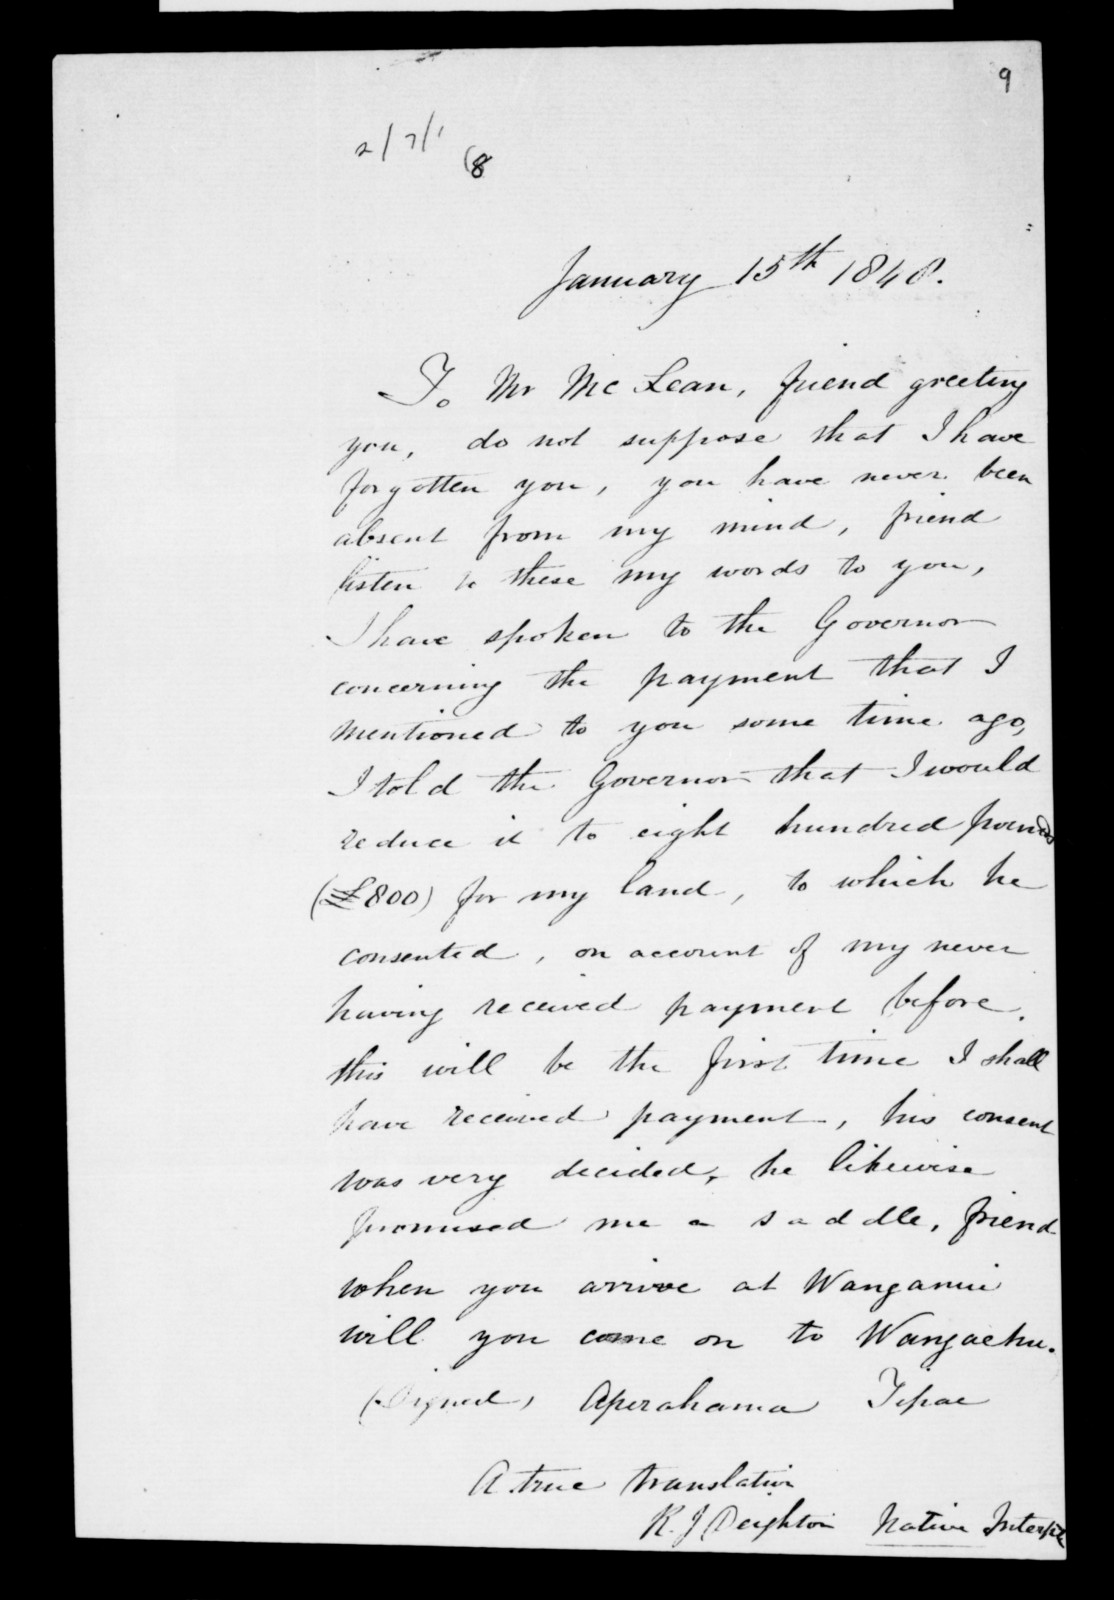 9
2/7/1
(8
January 15th 1848.
To Mr McLean, friend greeting
you, do not suppose that I have
forgotten you, you have never been
absent from my mind, friend
listen to these my words to you,
I have spoken to the Governor
concerning the payment that I
mentioned to you some time ago,
I told the Governor that I would
reduce it to eight hundred pounds
(£800) for my land, to which he
consented, on account of my never
having received payment before,
this will be the first time I shall
have received payment, his consent
was very decided, he likewise
promised me a saddle, friend
when you arrive at Wanganui
will you come on to Wangaehu.
(Signed) Aperahama Tipae
A true translation
R. J Deighton Native Interpte